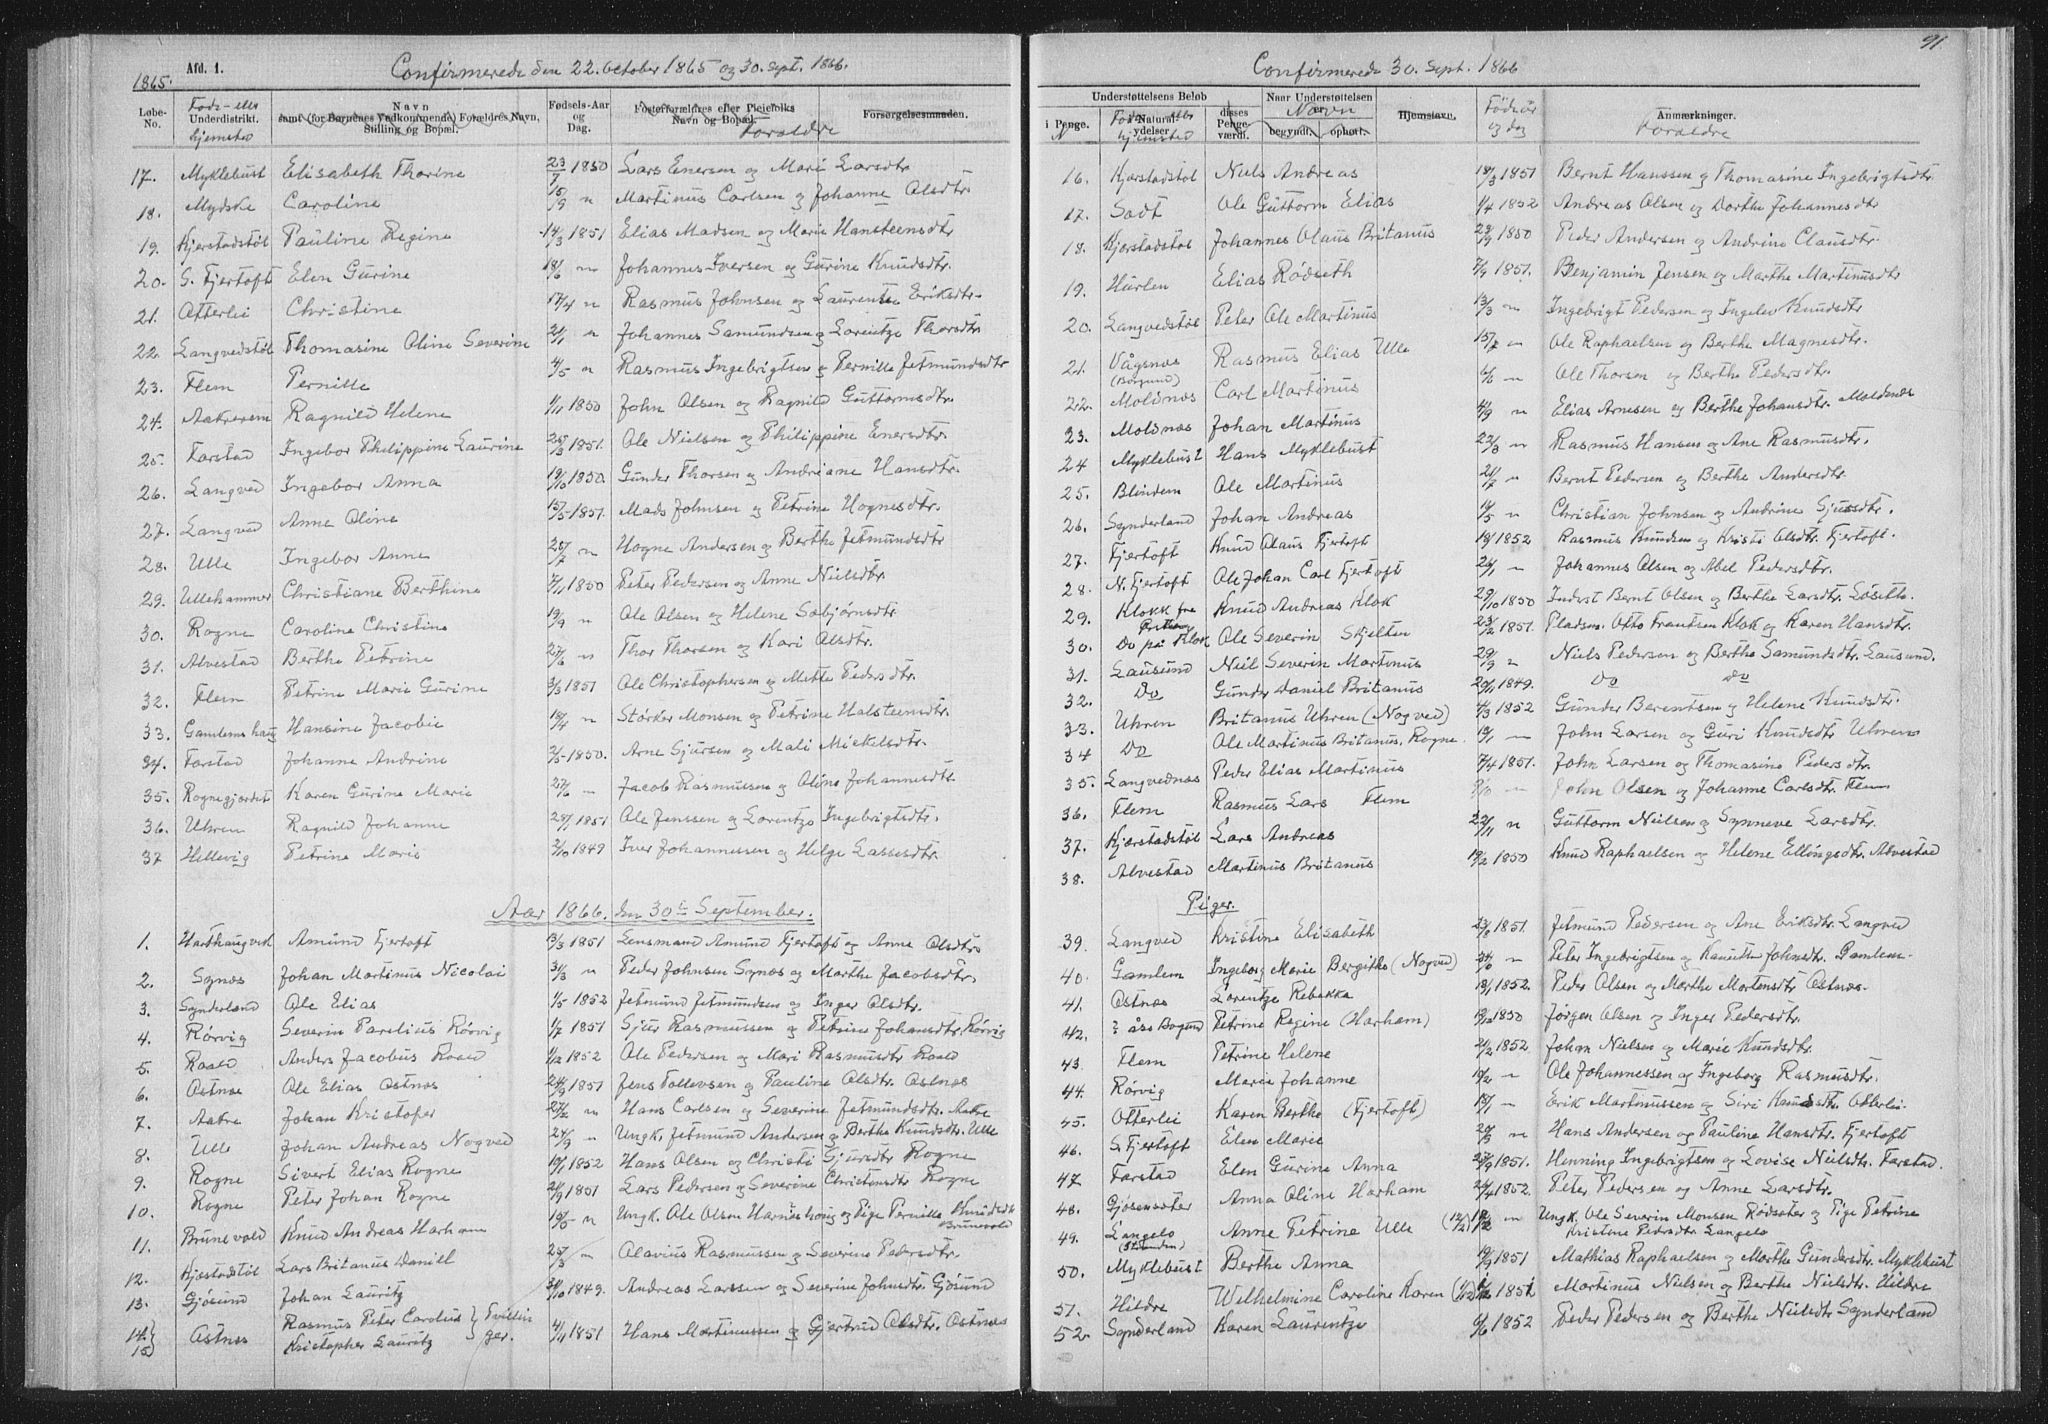 1865. Afd. 1. Confirmerede den 22. October 1865 og 30. Sept. 1866.
Løbe-No. Føde- eller Underdistrikt. hjemsted Navn samt (for Børnenes Vedkommende) Forældres Navn, Stilling og Bopæl. Fødsels-Aar og Dag. Fosterforældres eller Pleiefolks Navn og Bopæl. Forældre Forsørgelsesmaaden.
17. Myklebust Elisabeth Thorine 23/7 1850 Lars Enersen og Mari Larsdtr
18. Mydske Caroline 15/9 " Martinus Carlsen og Johanne Olsdtr
19. Kjerstadstøl Pauline Regine 14/3 1851 Elias Madsen og Marie Hansteensdtr
20. S. Fjertoft Elen Gurine 18/6 " Johannes Iversen og Gurine Knudsdtr.
21. Otterlei Christine 17/4 " Rasmus Johnsen og Laurentse Eriksdtr.
22. Langvedstøl Thomasine Oline Severine 21/1 " Johannes Samundsen og Lorentze Thorsdtr
23. Flem Pernille 4/5 " Rasmus Ingebrigtsen og Pernille Jetmundsdtr
24. Aakrevem Ragnild Helene 1/11 1850 John Olsen og Ragnild Guttormsdtr.
25. Farstad Ingebor Philippine Laurine 25/3 1851. Ole Nielsen og Philippine Enersdtr.
26. Langved Ingebor Anna 19/10 1850. Gunder Thorsen og Andriane Hansdtr.
27. Langved Anne Oline 15/5 1851. Mads Johnsen og Petrine Hognesdtr.
28. Ulle Ingebor Anne 28/7 " Hogne Andersen og Berthe Jetmundsdtr
29. Ullehammer Christiane Berthine 7/11 1850 Peter Pedersen og Anne Nielsdtr.
30. Rogne Caroline Christine 19/9 " Ole Olsen og Helene Sæbjørnsdtr
31. Alvestad Berthe Petrine 27/6 " Thor Thorsen og Kari Olsdtr.
32. Flem Petrine Marie Gurine 3/3 1851 Ole Christophersen og Mette Pedersdtr.
33. Gamlems haug Hansine Jacobie 18/4 " Størker Monsen og Petrine Halsteensdtr.
34. Farstad Johanne Andrine 2/5 1850. Arne Sjursen og Mali Mickelsdtr.
35. Rognegjerdet Karen Gurine Marie 27/6 — Jacob Rasmussen og Oline Johannesdtr.
36. Uhren Ragnild Johanne 28/1 1851 Ole Jenssen og Lorentze Ingebrigtsdtr.
37 Hellevig Petrine Marie 2/10 1849 Iver Johannessen og Helge Lassesdtr.
Aar 1866. den 30te September.
1. Harthaugvik Amund Fjertoft 13/3 1851 Lensmand Amund Fjertoft og Anne Olsdtr
2. Synæs Johan Martinus Nicolai 31/3 " Peder Johnsen Synæs og Marthe Jacobsdtr.
3. Synderland Ole Elias 1/5 1852 Jetmund Jetmundsen og Inger Olsdtr.
4. Rørvig Severin Parelius Rørvig 1/7 1851 Sjur Rasmussen og Petrine Johansdtr. Rørvig
5. Roald Anders Jacobus Roald 1/12 1852 Ole Pedersen og Mari Rasmusdtr Roald
6. Ostnæs Ole Elias Ostnæs 24/9 1851 Jens Tollevsen og Pauline Olsdtr. Ostnæs
7. Aakre Johan Kristofer 27/2 " Hans Carlsen og Severine Jetmundsdtr. Aakre
8. Ulle Johan Andreas Nogved 24/9 " Ungk. Jetmund Andersen og Berthe Knudsdtr. Ulle
9. Rogne Sivert Elias Rogne 19/1 1852 Hans Olsen og Christi Gjursdtr Rogne
10. Rogne Peter Johan Rogne 21/9 1851 Lars Pedersen og Severine Christensdtr Rogne
11. Brunevold Knud Andreas Harham 19/5 " Ungk. Ole Olsen Harneshoug og Pige Pernille Knudsdtr Brunevold
12. Kjæstadstøl Lars Britanus Daniel 25/3 " Olavius Rasmussen og Severine Pedersdtr.
13. Gjøsund Johan Lauritz 31/10 1849. Andreas Larssen og Severine Johnsdtr Gjøsund
14.) 15) Ostnæs Rasmus Peter Carolus } Tvillin
Kristopher Lauritz ger. 4/11 1851 Hans Martinussen og Gjertrud Olsdtr. Ostnæs
91
Confirmerede 30. Sept. 1866
Understøttelsens Beløb i Penge. N Føde- eller Natural-ydelser hjemsted disses Penge-værdi. Naar Understøttelsen er Navn begyndt. ophørt. Hjemstavn. Fødselsår og dag Anmærkninger. Forældre
16. Kjærstadstøl Niels Andreas 18/3 1851 Bernt Hanssen og Thomasine Ingebrigtsdtr
17. Sædt Ole Guttorm Elias 1/4 1852 Andreas Olsen og Dorthe Johannesdtr
18. Kjærstadstøl Johannes Olaus Britanus 29/9 1850 Peder Andersen og Andrine Clausdtr.
19. Hurlen Elias Rødseth 7/9 1851. Benjamin Jensen og Marthe Martinusdtr
20. Langvedstøl Peter Ole Martinus 13/3 " Ingebrigt Pedersen og Ingelev Knudsdtr
21. Vågsnæs (Borgund) Rasmus Elias Ulle 15/7 " Ole Raphaelsen og Berthe Magnesdtr.
22. Moldnæs Carl Martinus 6/6 " Ole Thorsen og Berthe Pedersdtr.
23. Moldnæs Johan Martinus 4/9 " Elias Arnesen og Berthe Johansdtr. Moldenæs
24 Myklebust Hans Myklebust 22/8 " Rasmus Hansen og Ane Rasmusdtr.
25. Blindem Ole Martinus 21/7 " Bernt Pedersen og Berthe Andersdtr.
26. Synderland Johan Andreas 14/5 " Christian Johnsen og Andrine Sjursdtr.
27. Fjertoft Knud Olaus Fjertoft 18/1 1852 Rasmus Knudsen og Kristi Olsdtr. Fjertoft.
28. N. Fjertoft Ole Johan Carl Fjertoft 26/1 — Johannes Olsen og Abel Pedersdtr.
29. Klokk fra Knud Andreas Klok 29/10 1850 Inderst Bernt Olsen og Berthe Larsdtr. Løsetto
30. Do på Klok Ole Severin Skjelten 23/2 1851. Pladsm. Otto Frantsen Klok og Karen Hansdtr.
31. Lausund Niel Severin Martinus 29/9 " Niels Pedersen og Berthe Samundsdtr. Lausund.
32. Do Gunder Daniel Britanus 20/11 1849. Do Do
33. Uhren Britanus Uhren (Nogved) 4/3 1852 Gunder Berentsen og Helene Knudsdtr
34 Do Ole Martinus Britanus. Rogne 19/1 — John Larsen og Guri Knudsdtr Uhren
35. Langvednæs Peder Elias Martinus 7/4 1851. John Larsen og Thomasine Pedersdtr.
36. Flem Rasmus Lars Flem — John Olsen og Johanne Carlsdtr. Flem
37. Kjærstadstøl Lars Andreas 22/11 " Guttorm Nielsen og Synneve Larsdtr.
38. Alvestad Martinus Britanus 19/2 1850 Knud Raphaelsen og Helene Ellingsdtr. Alvestad
Piger.
39. Langved Kristine Elisabeth 23/8 1851. Jetmund Pedersen og Ane Eriksdtr. Langved
40. Gamlem Ingeborg Marie Bergitte (Nogved) 24/6 " Peter Ingebrigtsen og Johnsdtr. Gamlem.
41. Ostnæs Lorentze Rebekka 13/1 1852. Peder Olsen og Marthe Mortensdtr Ostnæs.
42. ? åss Borgund Petrine Regine (Harham) 19/12 1850 Jørgen Olsen og Inger Pedersdtr.
43. Flem Petrine Helene 2/2 1852 Johan Nielsen og Marie Knudsdtr.
44. Rørvig Marie Johanne 19/2 — Ole Johannessen og Ingeborg Rasmusdtr.
45. Otterlei Karen Berthe (Fjertoft) 13/1 — Erik Martinussen og Siri Knudsdtr. Otterlei.
46. S. Fjertoft Elen Marie 20/3 " Hans Andersen og Pauline Hansdtr. Fjertoft
47 Farstad Elen Gurine Anna 27/9 1851. Henning Ingebrigtsen og Lovise Nielsdtr. Farstad.
48. Gjøsensæter Anna Oline Harham 24/4 1852. Peter Pedersen og Anne Larsdtr.
49. Langelo (Stranden) Anne Petrine Ulle (12/2) 18/2 " Ungk. Ole Severin Monsen Rødsæter og Pige Petrine
Kristine Pedersdtr Langelo
50. Myklebust Berthe Anna 19/9 1851 Mathias Raphaelsen og Marthe Gundersdtr. Myklebust
51. Hildre Wilhelmine Caroline Karen 1851 Martinus Nielsen og Berthe Nielsdtr. Hildre
52. Synderland Karen Laurentze 6/6 1852 Peder Pedersen og Berthe Nielsdtr Synderland